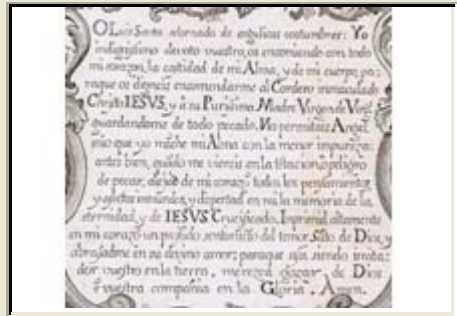 O Luis Santo adornado de angelicas costumbres: Yo
indignissimo devoto vuestro, os encomiendo con todo
mi corazon, la castidad de mi Alma, y de mi cuerpo, pa:
raque os digneis encomendarme al Cordero inmaculado
Christo IESVS, y á su Purissima Madre Virgen de Virg.
guardandome de todo pecado. No permitais Angel
mio que yo māche mi Alma con la menor impureza:
antes bien, quādo me viereis en la tētacion ó peligro
de pecar, alejad de mi corazō todos los pensamientos
y afectos inmūdos, y dispertad en mi la memoria de la
eternidad, y de IESVS Crucificado. Imprimid altamente
en mi corazō un profūdo sentimiēto del temor Sāto de Dios, y
abrasadme en su divino amor; paraque assi siendo imita:
dor vuestro en la tierra, merezca gozar, de Dios
ē vuestra compañia en la Gloria. Amen.